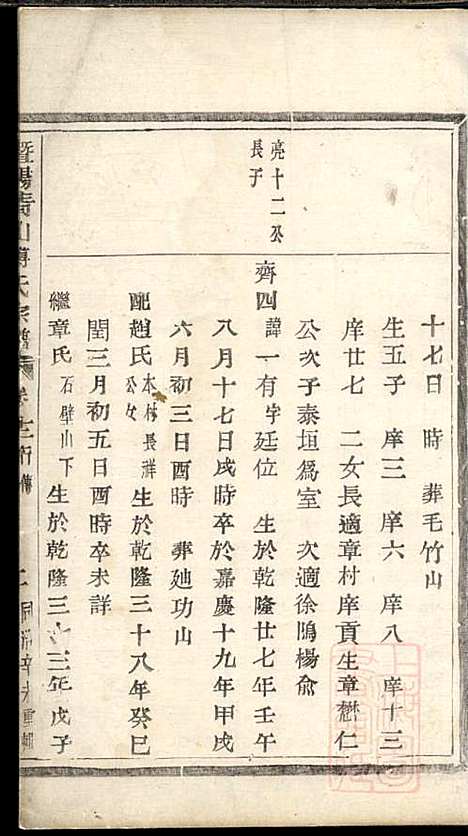 十七日　時　葬毛竹山
生五子　庠三　庠六　庠八　庠十三
庠廿七　二女長適章村庠貢生章懋仁
公次子泰垣為室　次適徐鴟楊俞
亮十二公
長子
齊四諱一有字廷位　生於乾隆廿七年壬午
八月十七日戌時卒於嘉慶十九年甲戌
六月初三日酉時　葬䢖功山
配趙氏本村長祥公女生於乾隆三十八年癸巳
閏三月初五日酉時卒未詳
繼章氏石壁山下生於乾隆三十三年戊子
暨陽青山傅氏宗譜